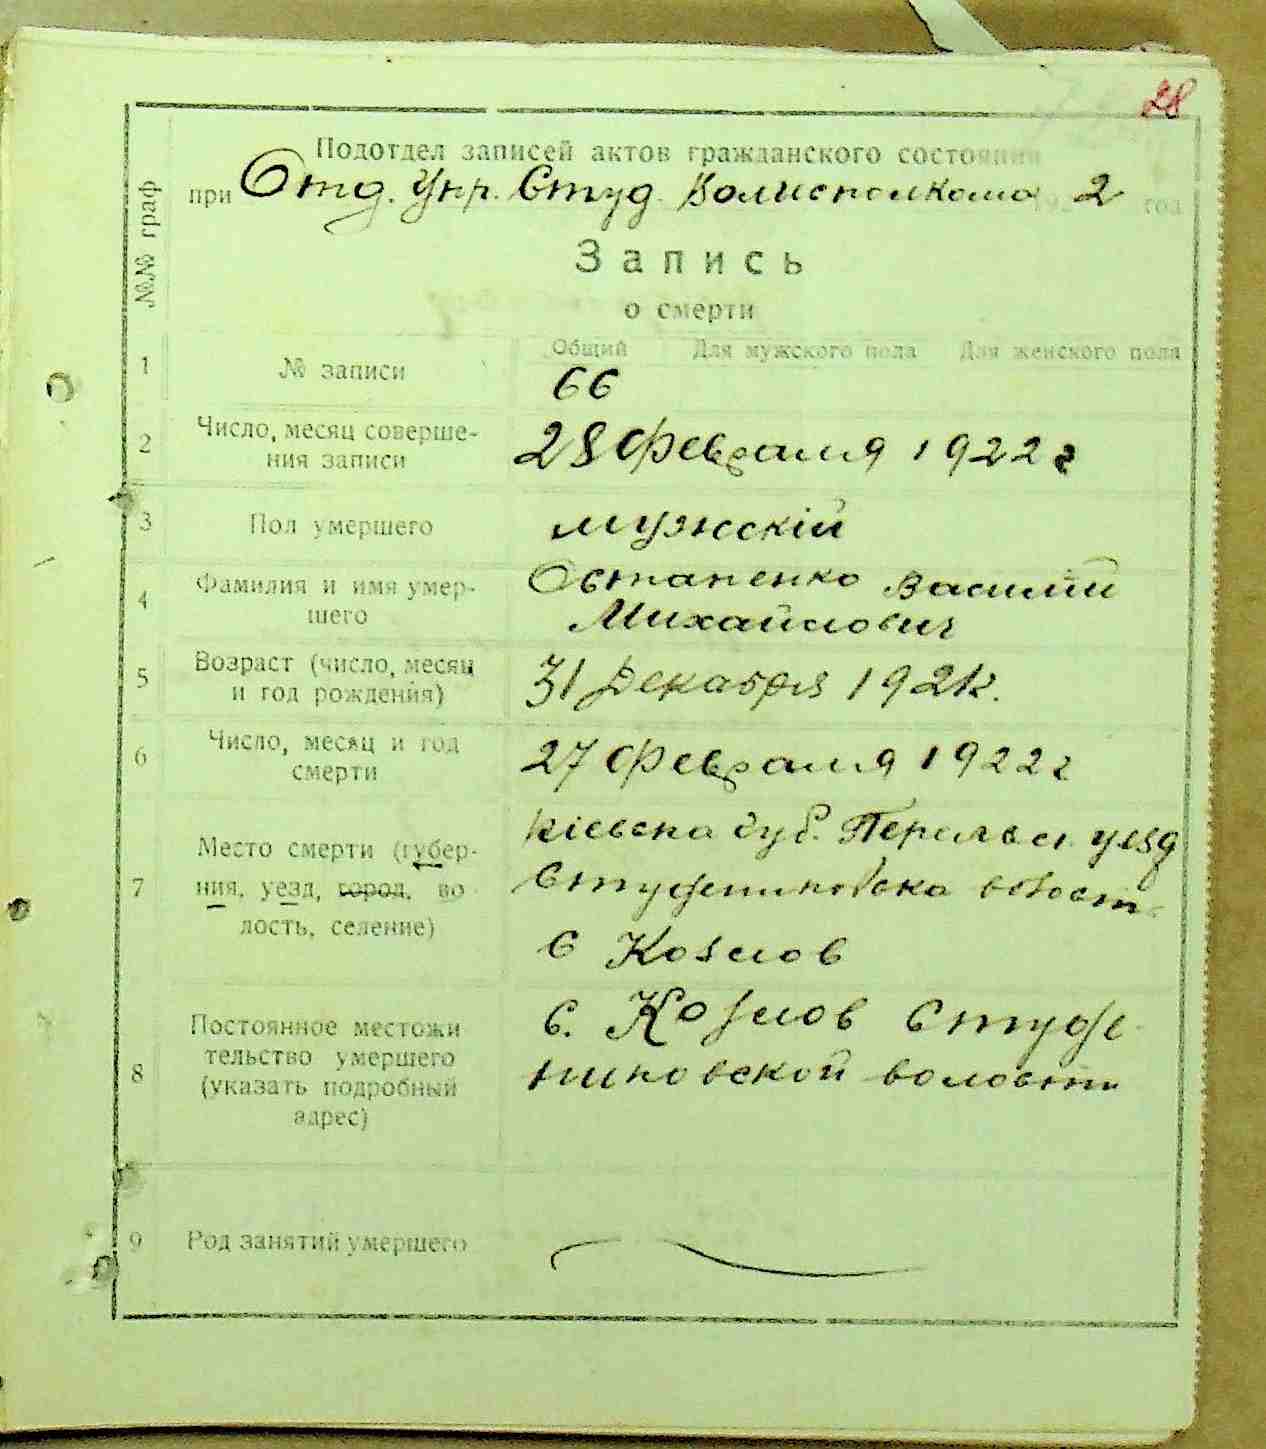 28
Подотдел записей актов гражданского состояния
при Отд. Упр. Студ. Волисполкома 2 год
№№ граф
Запись
о смерти
Общий Для мужского пола Для женского пола
1 № записи 66
2 Число, месяц соверше-
ния записи
28 февраля 1922 г
3 Пол умершего мужскій
4 Фамилия и имя умер-
шего
Остапенко Василий
Михайлович
5 Возраст (число, месяц
и год рождения)
31 Декабря 1921г.
6 Число, месяц и год
смерти
27 февраля 1922 г
7 Место смерти (губер-
ния, уезд, город, во-
лость, селение)
Кіевска губ. Переясл. уезд
Студениковска волост
С Козлов
8 Постоянное местожи
тельство умершего
(указать подробный
адрес)
С. Козлов Студе
никовской волости
9 Род занятий умершего